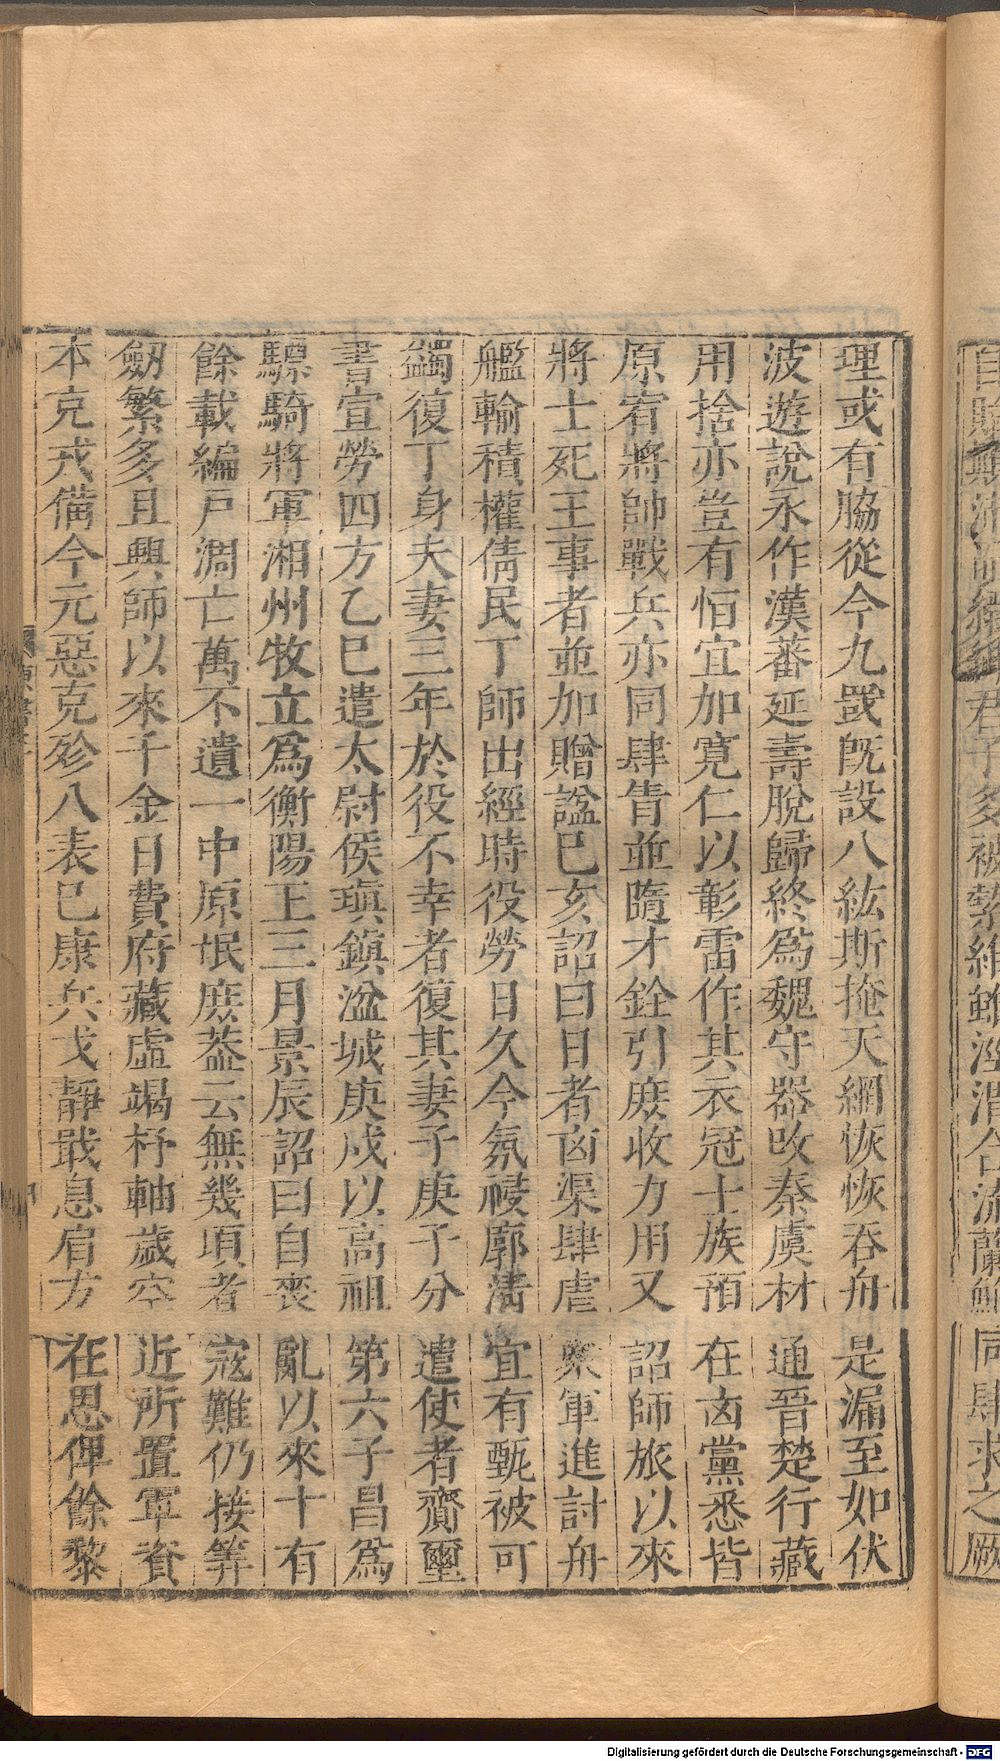 理或有脇從今九罭旣設八紘斯掩天網恢恢吞舟是漏至如伏
波遊說永作漢蕃延壽脫歸終爲魏守器改秦虞材通晉楚行藏
用捨亦豈有恒宜加寬仁以彰雷作其衣冠士族預在凶黨悉皆
原宥將帥戰兵亦同肆眚並隨才銓引庶收力用又詔師旅以來
將士死王事者並加贈謚巳亥詔曰日者凶渠肆虐衆軍進討舟
艦輸積權倩民丁師出經時役勞日久今氛祲廓淸宜有甄被可
蠲復丁身夫妻三年於役不幸者復其妻子庚子分遣使者齎璽
書宣勞四方乙巳遣太尉侯瑱鎮湓城庚戌以高祖第六子昌爲
驃騎將軍湘州牧立爲衡陽王三月景辰詔曰自喪亂以來十有
餘載編戶凋亡萬不遺一中原氓庶葢云無幾頃者寇難仍接筭
劒繁多且興師以來千金日費府藏虛竭杼軸歲空近所置軍資
本克戎備今元惡克殄八表巳康兵戈靜戢息肩方在思俾餘黎
同肆求之厥
Digitalisierung gefördert durch die Deutsche Forschungsgemeinschaft - DFG